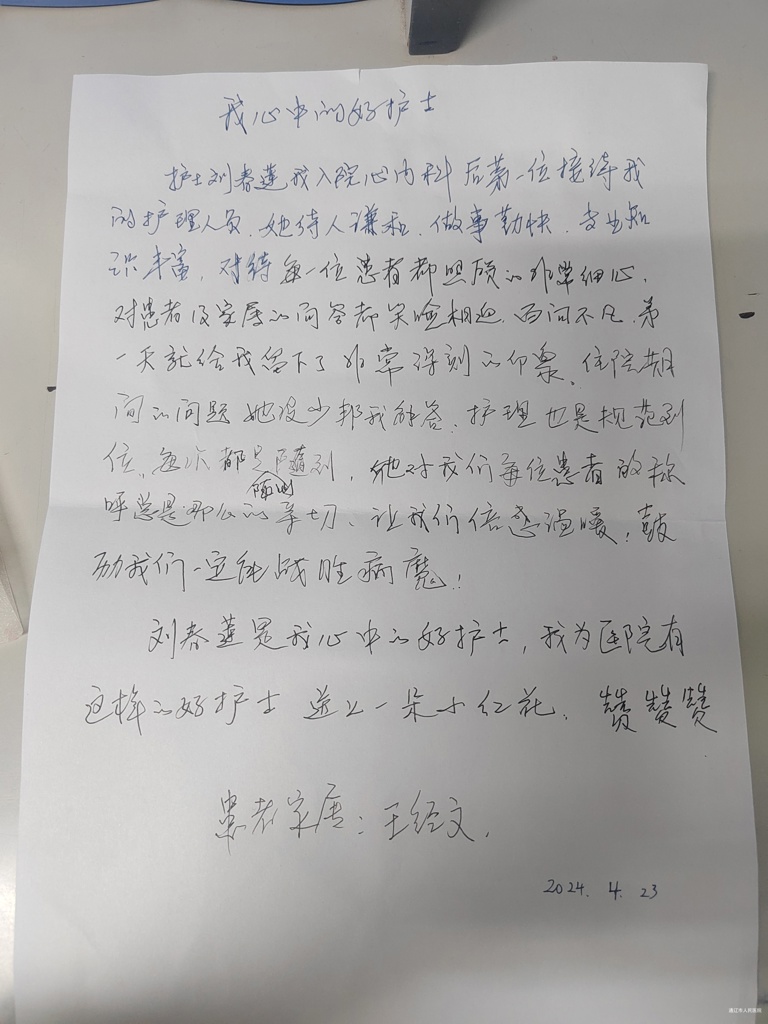 我心中的好护士
护士刘春莲我入院心内科后第一位接待我
的护理人员.她待人谦和.做事勤快.专业知
识丰富,对待每一位患者都照顾的非常细心.
对患者及家属的问答都笑脸相迎.西问不凡.第
一天就给我留下了非常深刻的印象、住院期
间的问题她没少帮我解答.护理也是规范到
位、每次都是随到,她对我们每位患者的称
随叫
呼总是那么的亲切、让我们倍感温暖,鼓
励我们一定能战胜病魔!
刘春莲是我心中的好护士,我为医院有
这样的好护士送上一朵小红花.赞赞赞
患者家属:王经文.
2024.4.23
潜江市人民医院